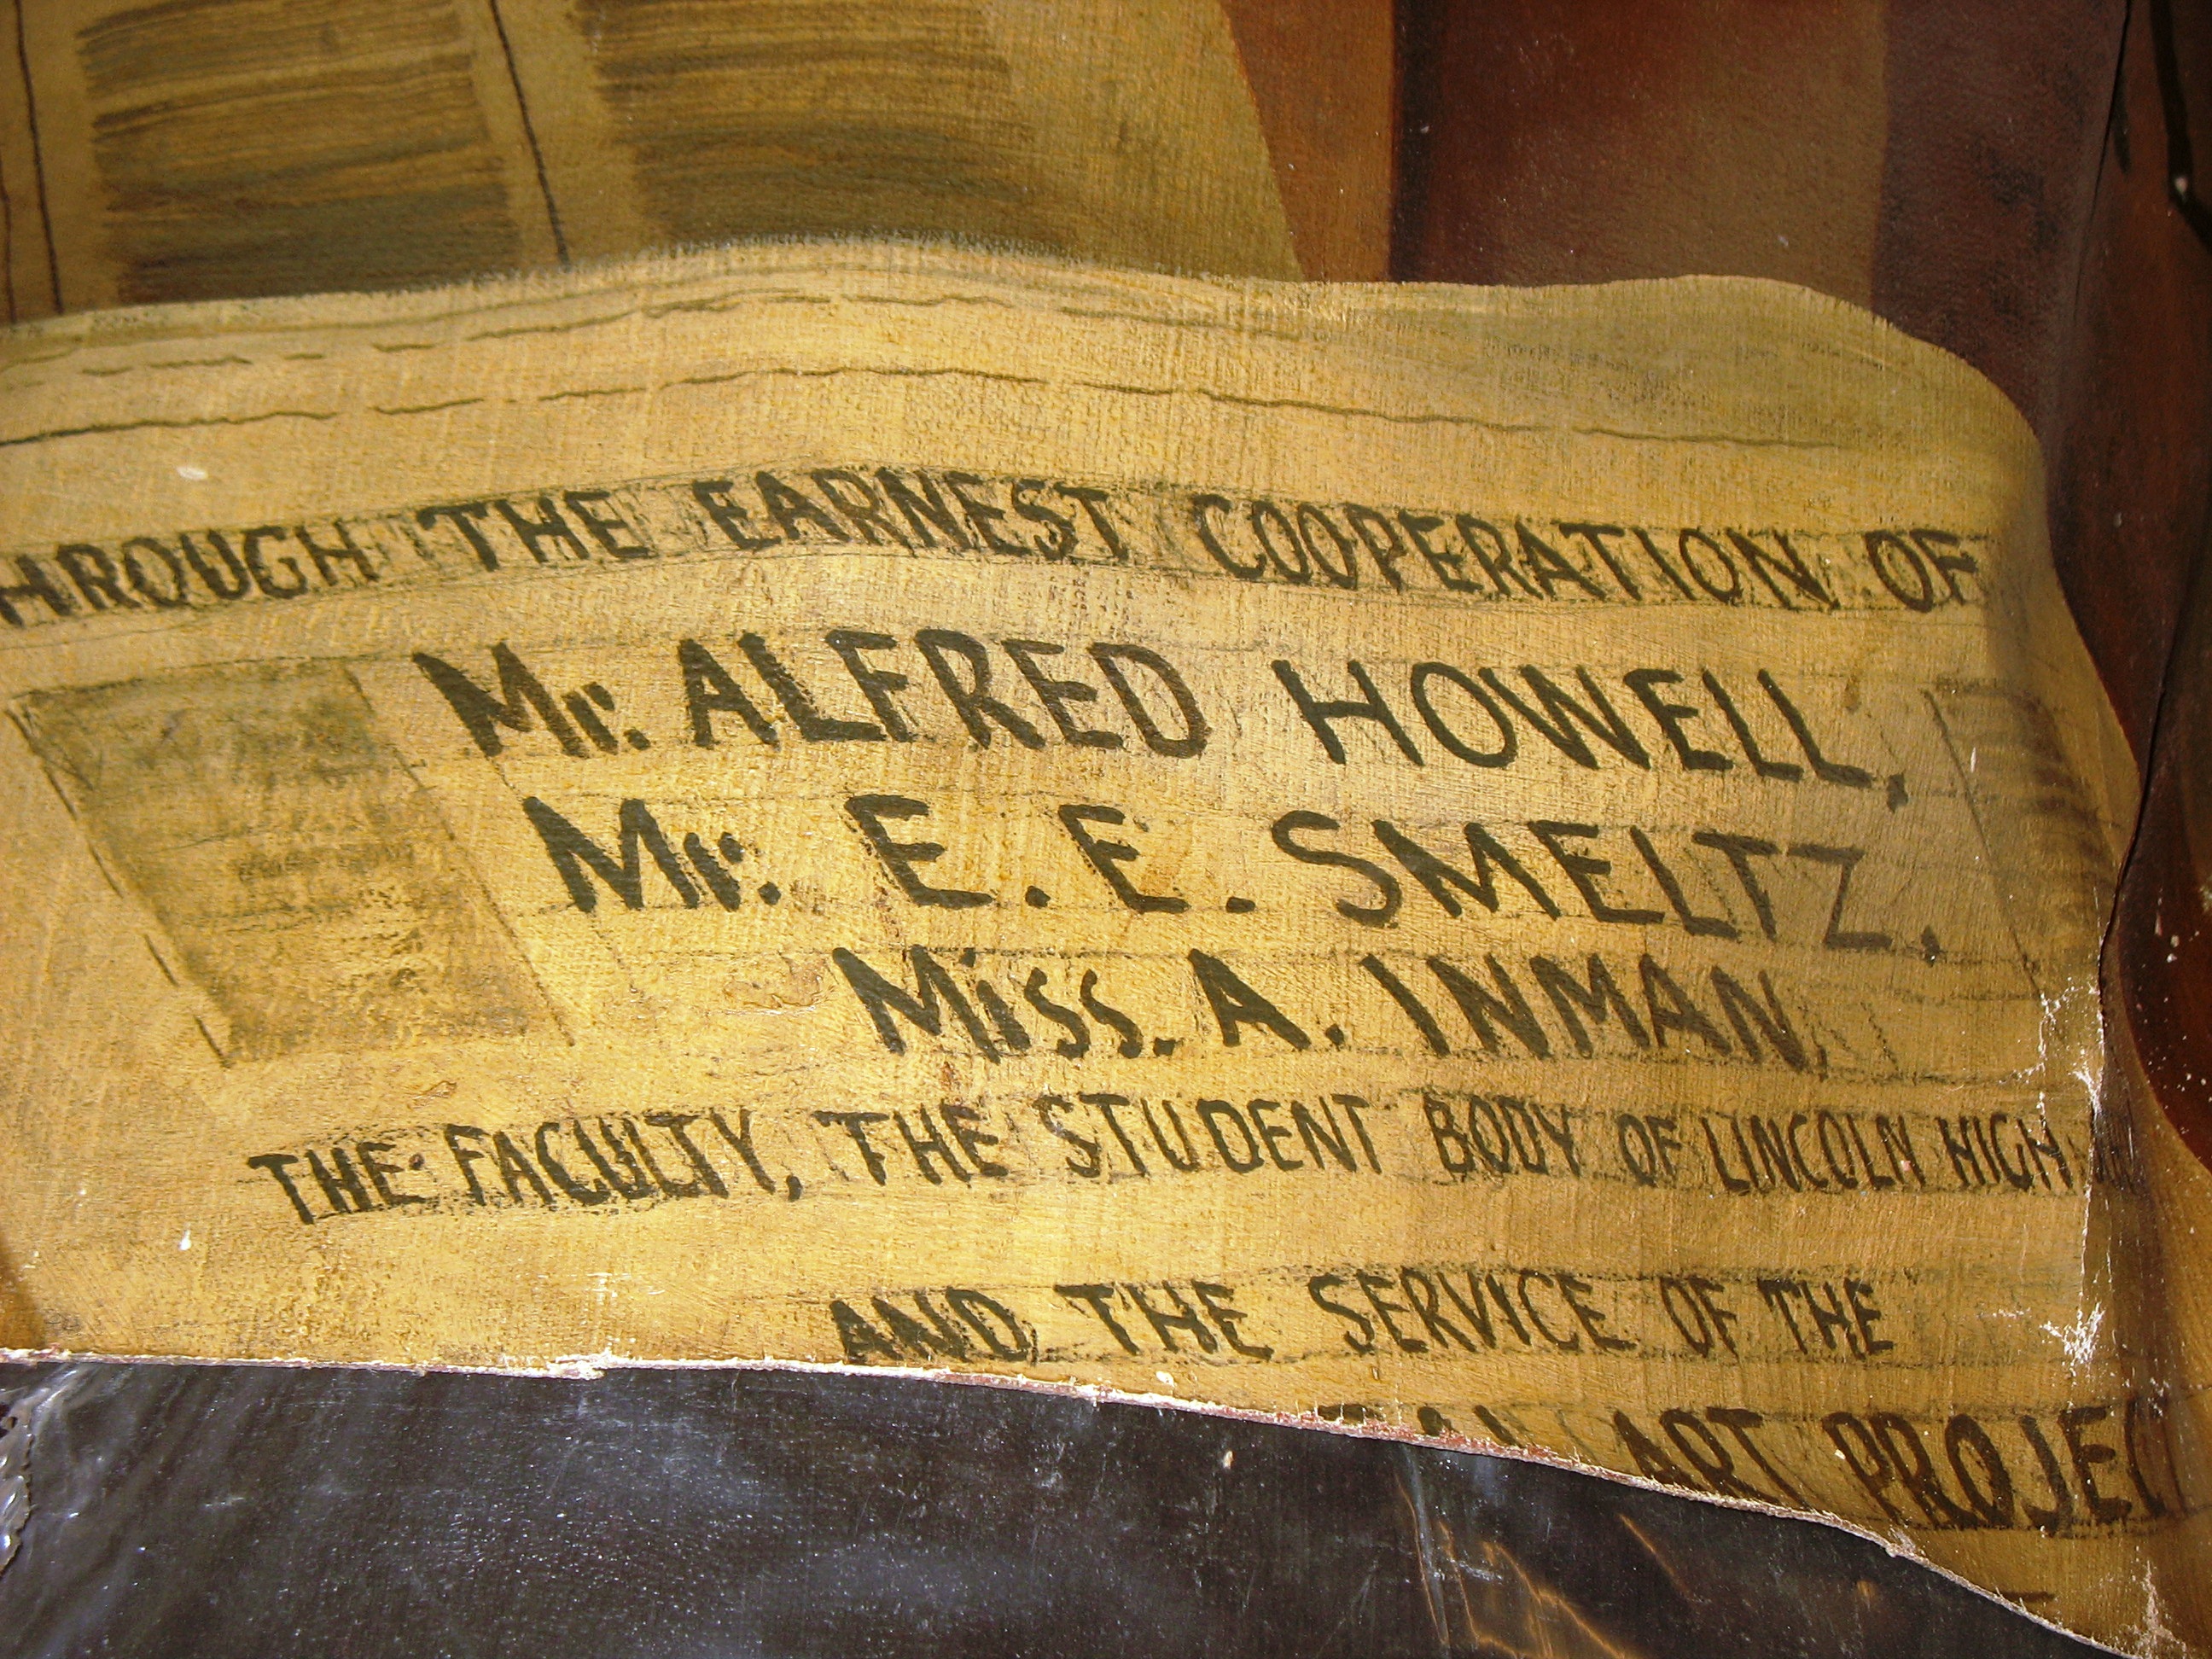 HROUGH THE EARNEST COOPERATION OF
Mr. ALFRED HOWELL,
Mr. E. E. SMELTZ,
Miss. A. INMAN,
THE FACULTY, THE STUDENT BODY OF LINCOLN HIGH
AND THE SERVICE OF THE
ART PROJEC